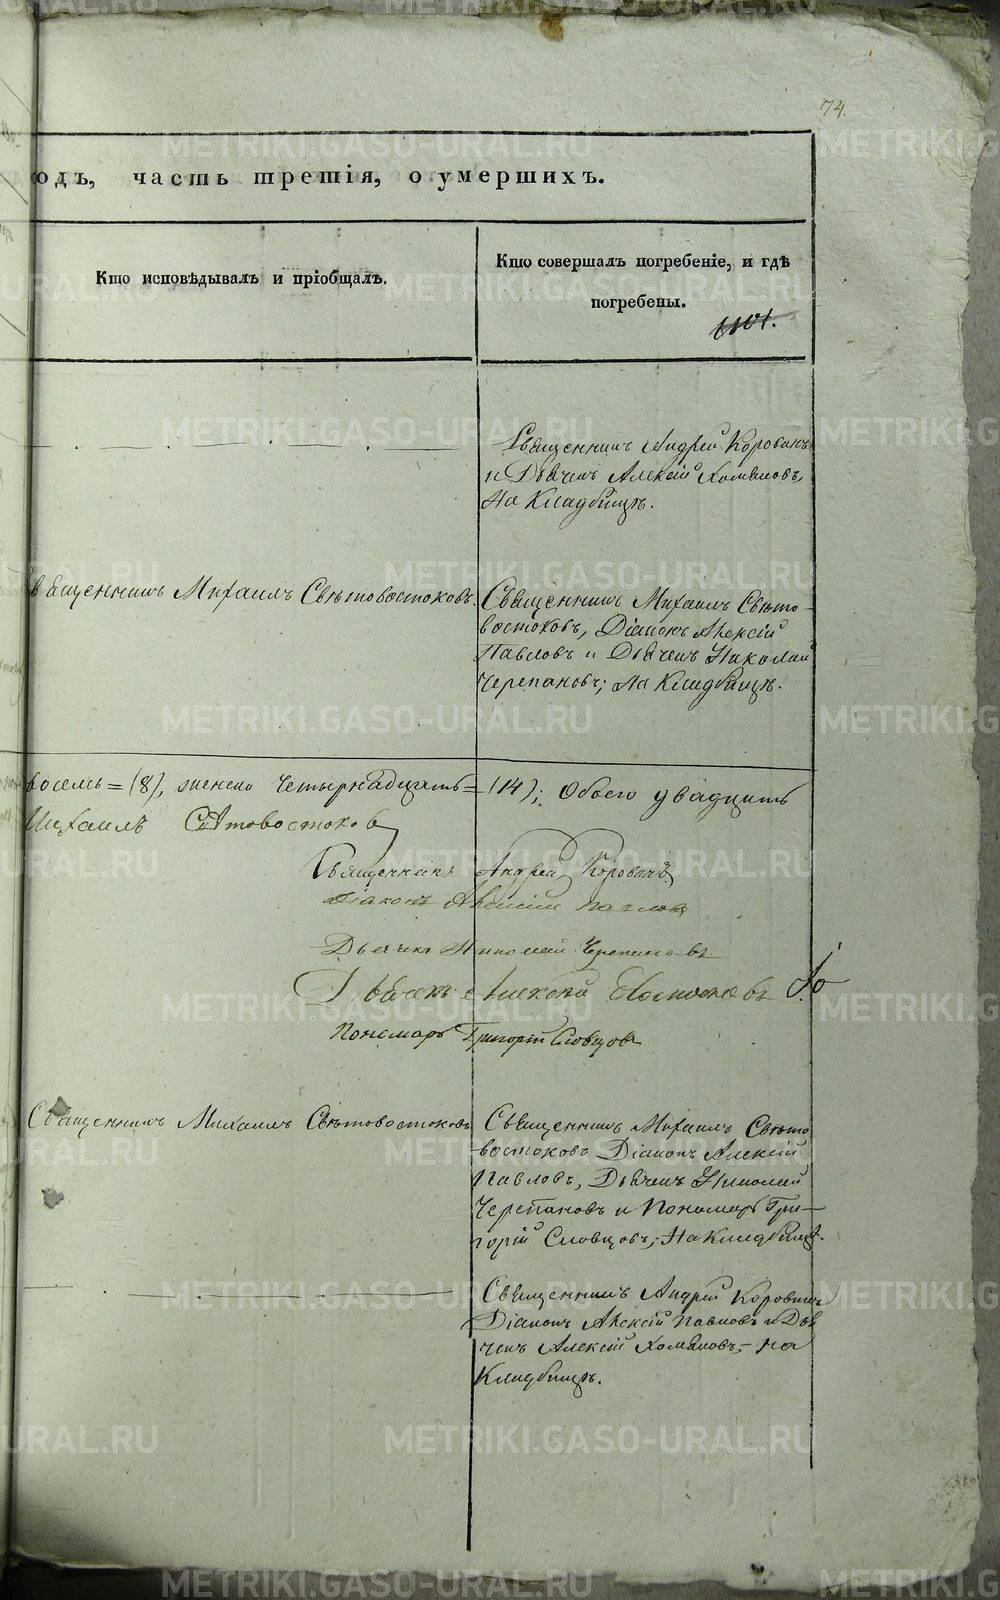 74.
одъ, часть третія, о умершихъ.
Кто исповѣдывалъ и пріобщалъ.
Кто совершалъ погребеніе, и гдѣ
погребены.
Священникъ Андрей Коровинъ
и Дьячекъ Алексій
На Кладбищѣ.
Священникъ Михаилъ Свѣтовостоковъ.
Священникъ Михаилъ Свѣто-
востоковъ, Діаконъ Алексій
Павловъ и Дьячекъ Николай
Черепановъ; На Кладбищѣ.
восемь = (8), женска четырнадцать = (14); Обоего двадцать
Михаилъ Свѣтовостоковъ
Священникъ Андрей Коровинъ
Діаконъ Алексій Павловъ
Дьячекъ Николай Черепановъ
Дьячекъ Алексій
Пономарь Григорій Словцовъ
Священникъ Михаилъ Свѣтовостоковъ
Священникъ Михаилъ Свѣто
востоковъ Діаконъ Алексій
Павловъ, Дьячекъ Николай
Черепановъ и Пономарь Гри-
горій Словцовъ; На Кладбищѣ.
Священникъ Андрей Коровинъ
Діаконъ Алексій Павловъ и Дья
чекъ Алексій на
Кладбищѣ.
METRIKI.GASO-URAL.RU